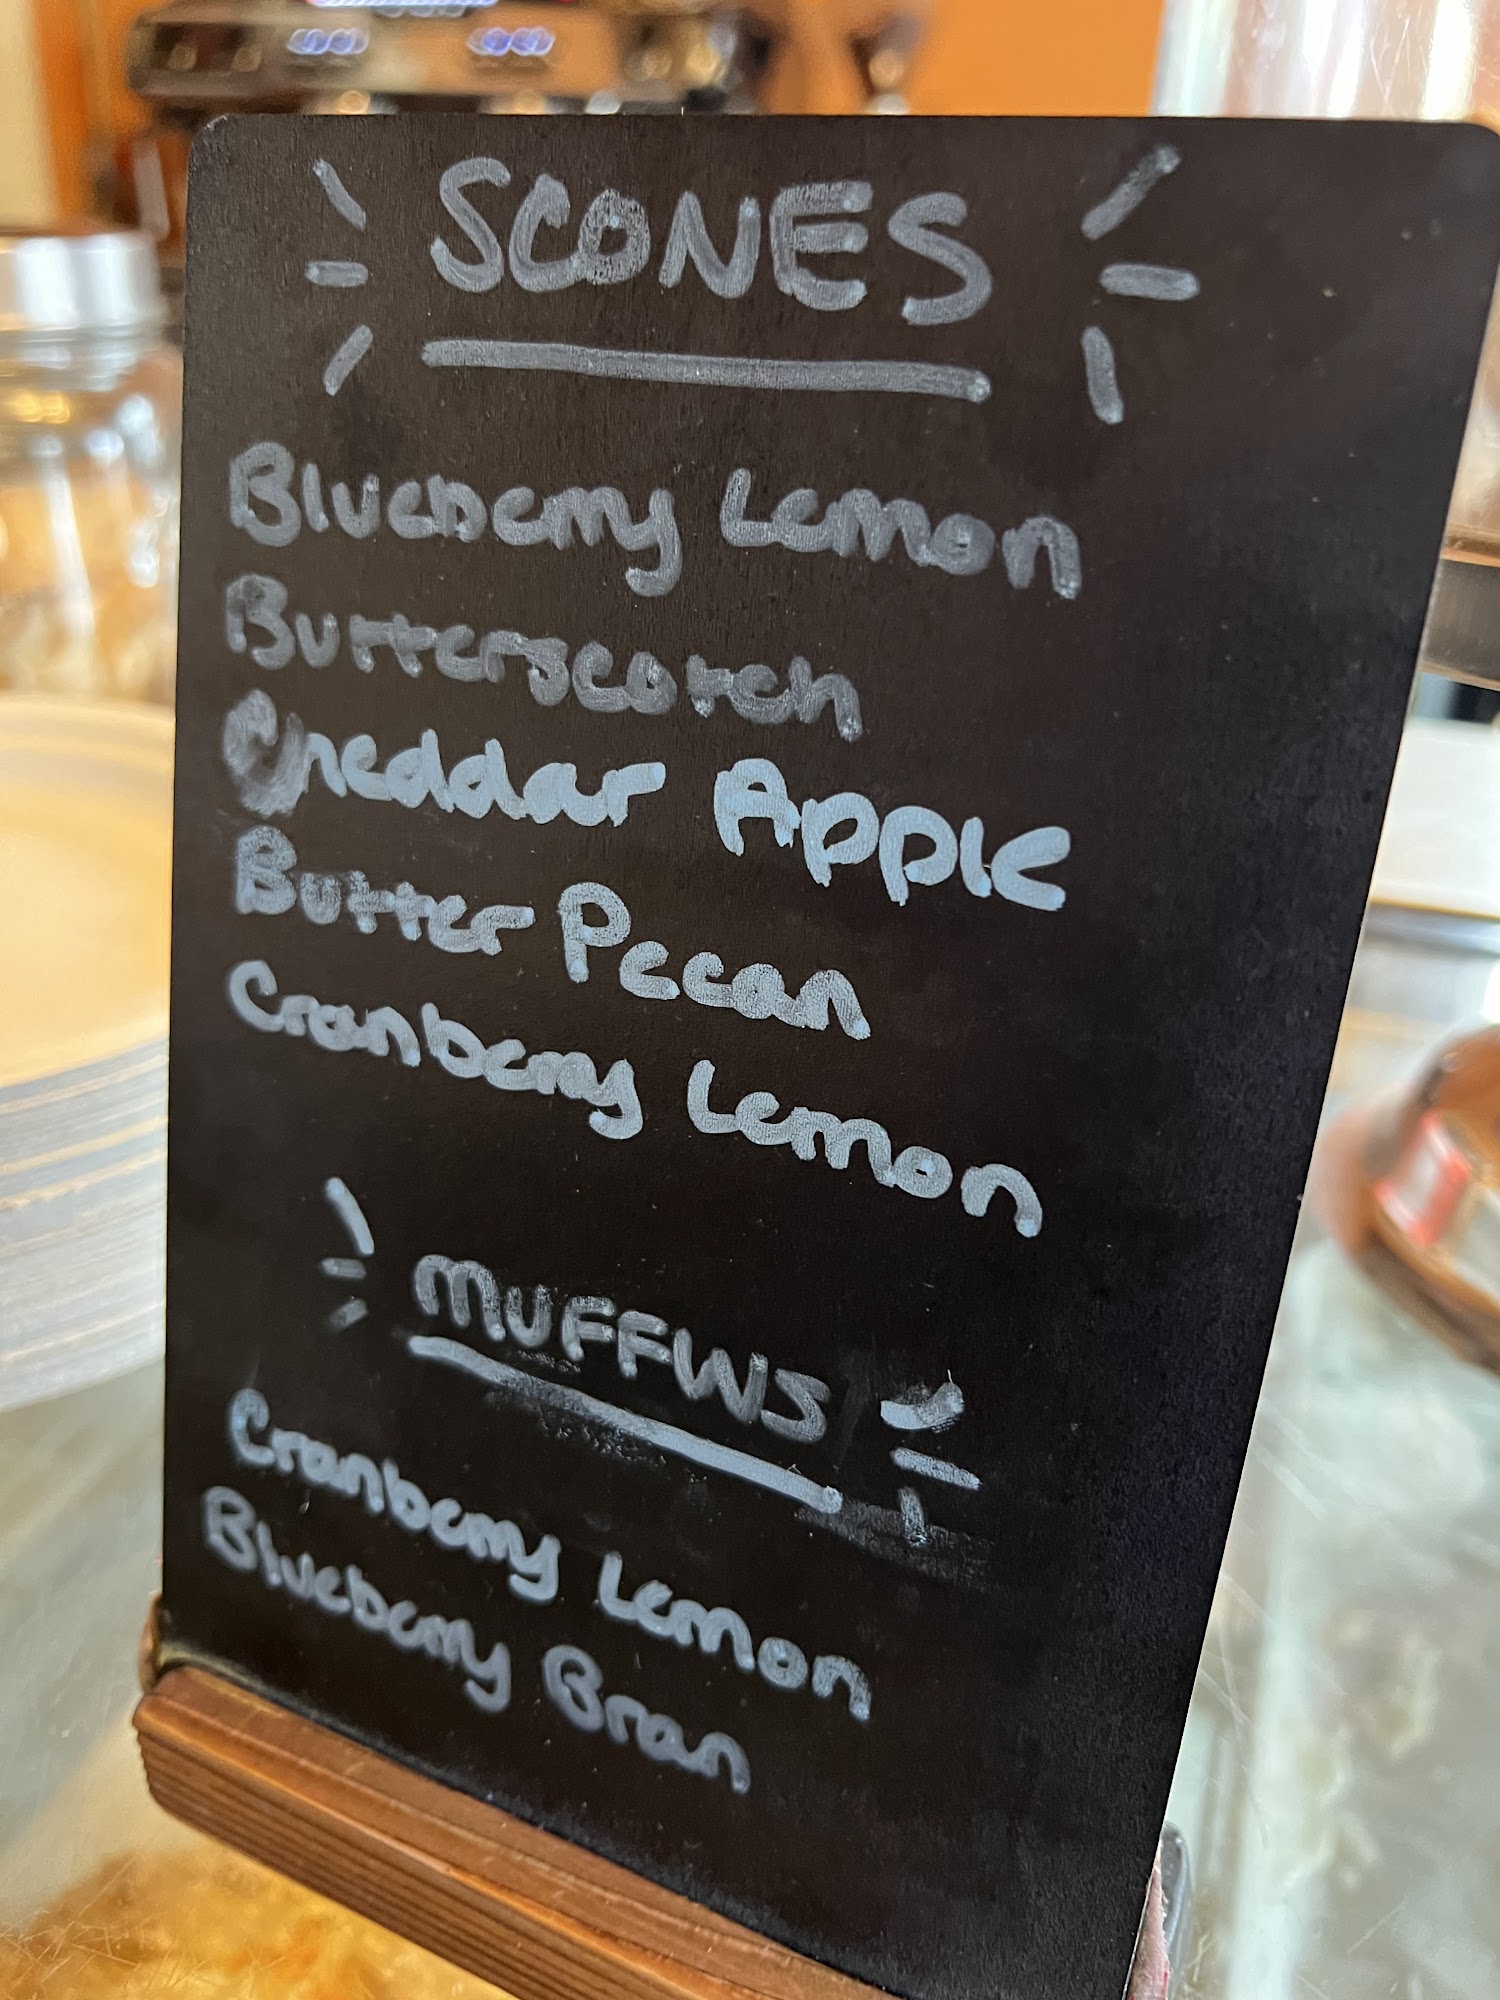 SCONES
Blueberry Lemon
Butterscotch
Cheddar Apple
Butter Pecan
Cranberry Lemon
MUFFINS
Cranberry Lemon
Blueberry Bran